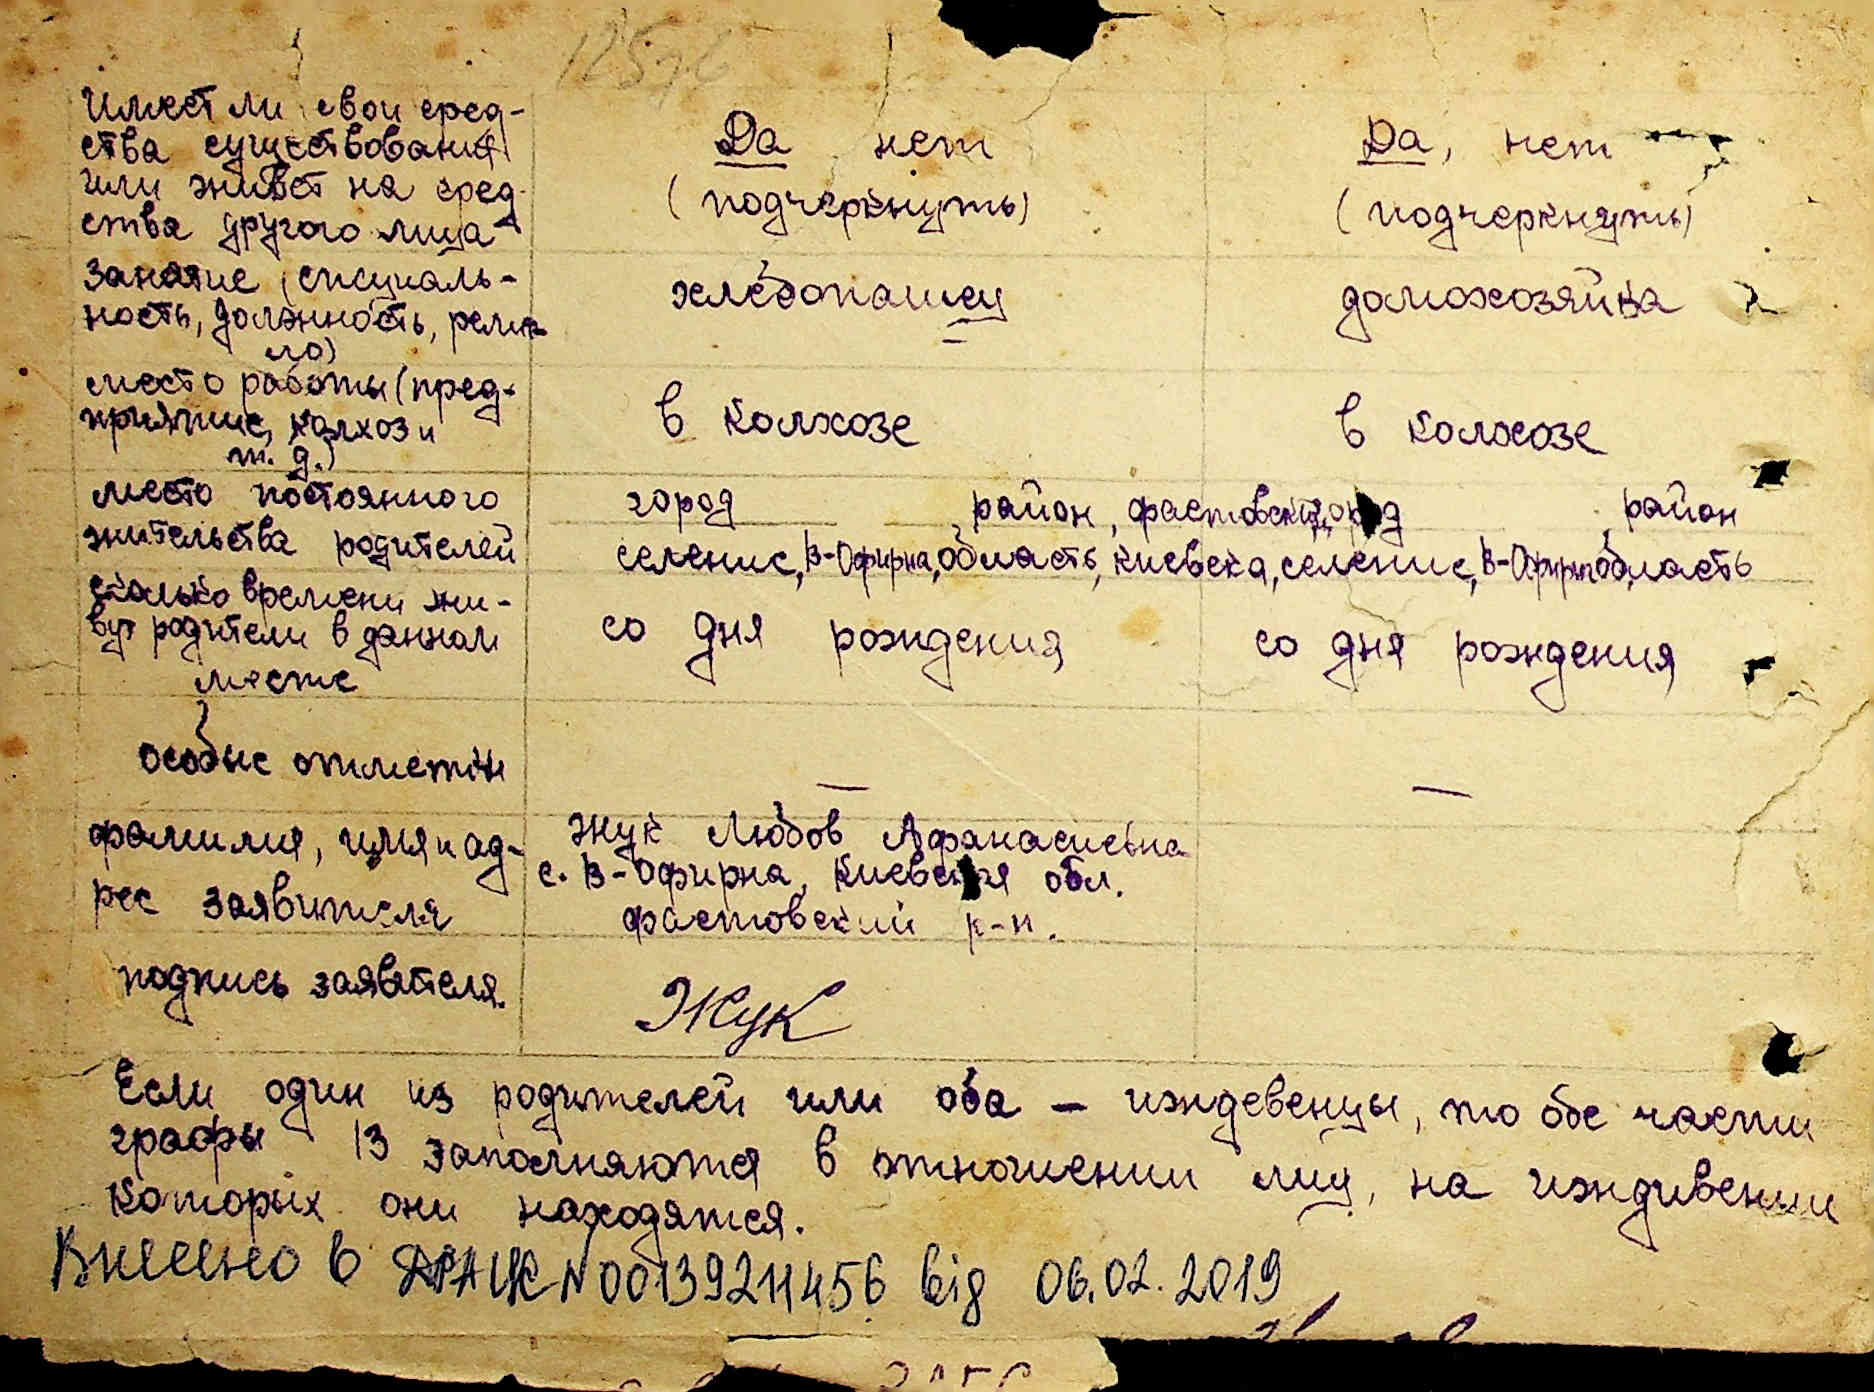 Имеет ли свои сред-
ства существования
или живет на сред-
ства другого лица
Да нет
(подчеркнуть)
Да, нет
(подчеркнуть)
Занятие (специаль-
ность, должность, ремес-
ло)
хлебопашец
домохозяйка
место работы (пред-
приятие, колхоз и
т. д.)
в колхозе
в колхозе
место постоянного
жительства родителей
город район, фастовский
селение, В-Офирна, область, киевска,
город район
селение, В-Офирна область
сколько времени жи-
вут родители в данном
месте
со дня рождения
со дня рождения
особые отметки
—
—
фамилия, имя и ад-
рес заявителя
Жук Любов Афанасиевна
с. В-Офирна, Киевская обл.
фастовский р-н.
подпись заявителя.
Жук
Если один из родителей или оба — иждевенцы, то обе части
графы 13 заполняются в отношении лиц, на иждивении
которых они находятся.
Внесено в ДРАЦС N00139211456 від 06.02.2019